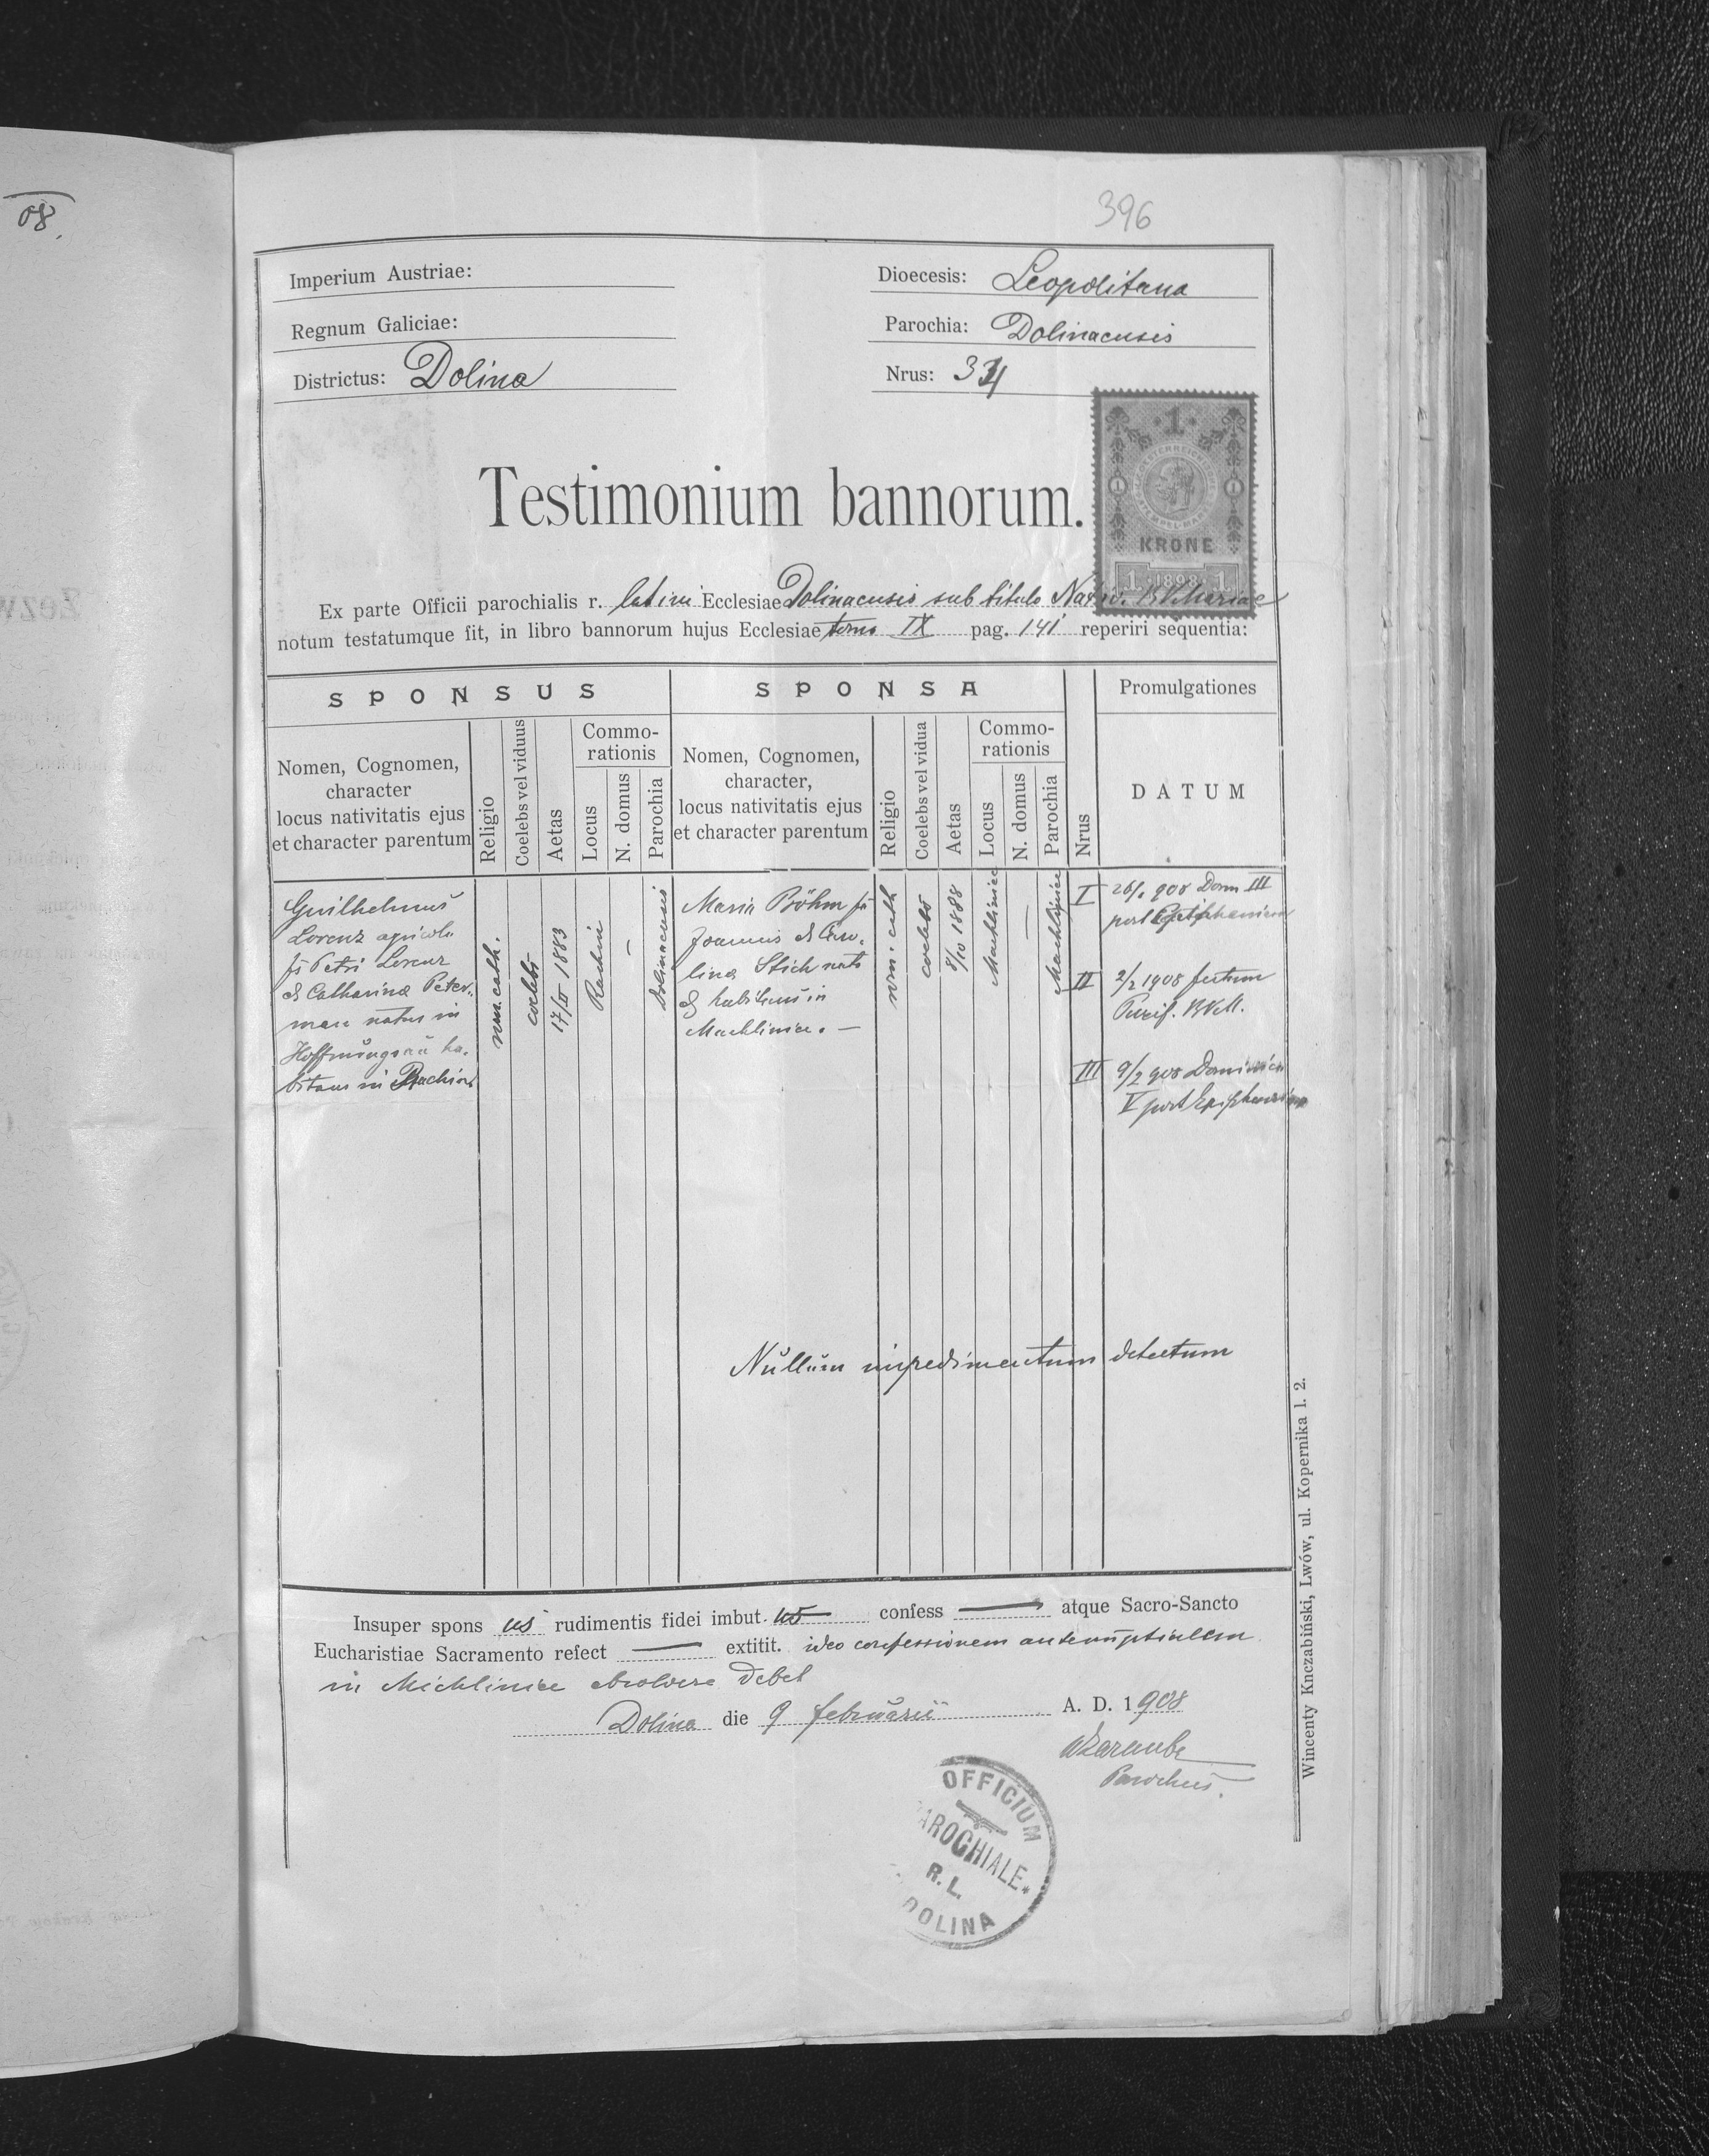 08.
396
Imperium Austriae:
Dioecesis: Leopolitana
Regnum Galiciae:
Parochia: Dolinacensis
Districtus: Dolina
Nrus: 34
1
KRONE
1 1898 1
Testimonium bannorum.
Ex parte Officii parochialis r. latini Ecclesiae Dolinacensis sub titulo Nativ. B V Mariae
notum testatumque fit, in libro bannorum hujus Ecclesiae tomo IX pag. 141 reperiri sequentia:
SPONSUS
SPONSA
Nrus
Promulgationes
Nomen, Cognomen,
character
locus nativitatis ejus
et character parentum
Religio
Coelebs vel viduus
Aetas
Commo-
rationis
Locus
N. domus
Parochia
Nomen, Cognomen,
character,
locus nativitatis ejus
et character parentum
Religio
Coelebs vel vidua
Aetas
Commo-
rationis
Locus
N. domus
Parochia
DATUM
Guilhelmus
Lorenz agricola
fs Petri Lorenz
et Catharina Peter-
man natus in
Hoffnungsau ha-
bitans in Rachin
rom. cath.
coelebs
17/II 1883
Rachin
–
Dolinacensis
Maria Böhm fa
Joannis et Caro-
lina Stich nata
et habitans in
Machlinice. —
rom. cath
coelebs
8/10 1888
Machliniec
—
Machliniec
I 26/1 908 Dom III
post Epiphaniam
II 2/2 1908 festum
Purif. BVM.
III 9/2 908 Dominica
V post Epiphaniam
Nullum impedimentum detectum
Insuper spons us rudimentis fidei imbut us confess — atque Sacro-Sancto
Eucharistiae Sacramento refect — extitit. ideo confessionem antenuptialem
in Michliniec absolvere debet
Dolina die 9 februarii A. D. 1908
Parochus.
OFFICIUM
PAROCHIALE
R. L.
DOLINA
Wincenty Knczabiński, Lwów, ul. Kopernika l. 2.